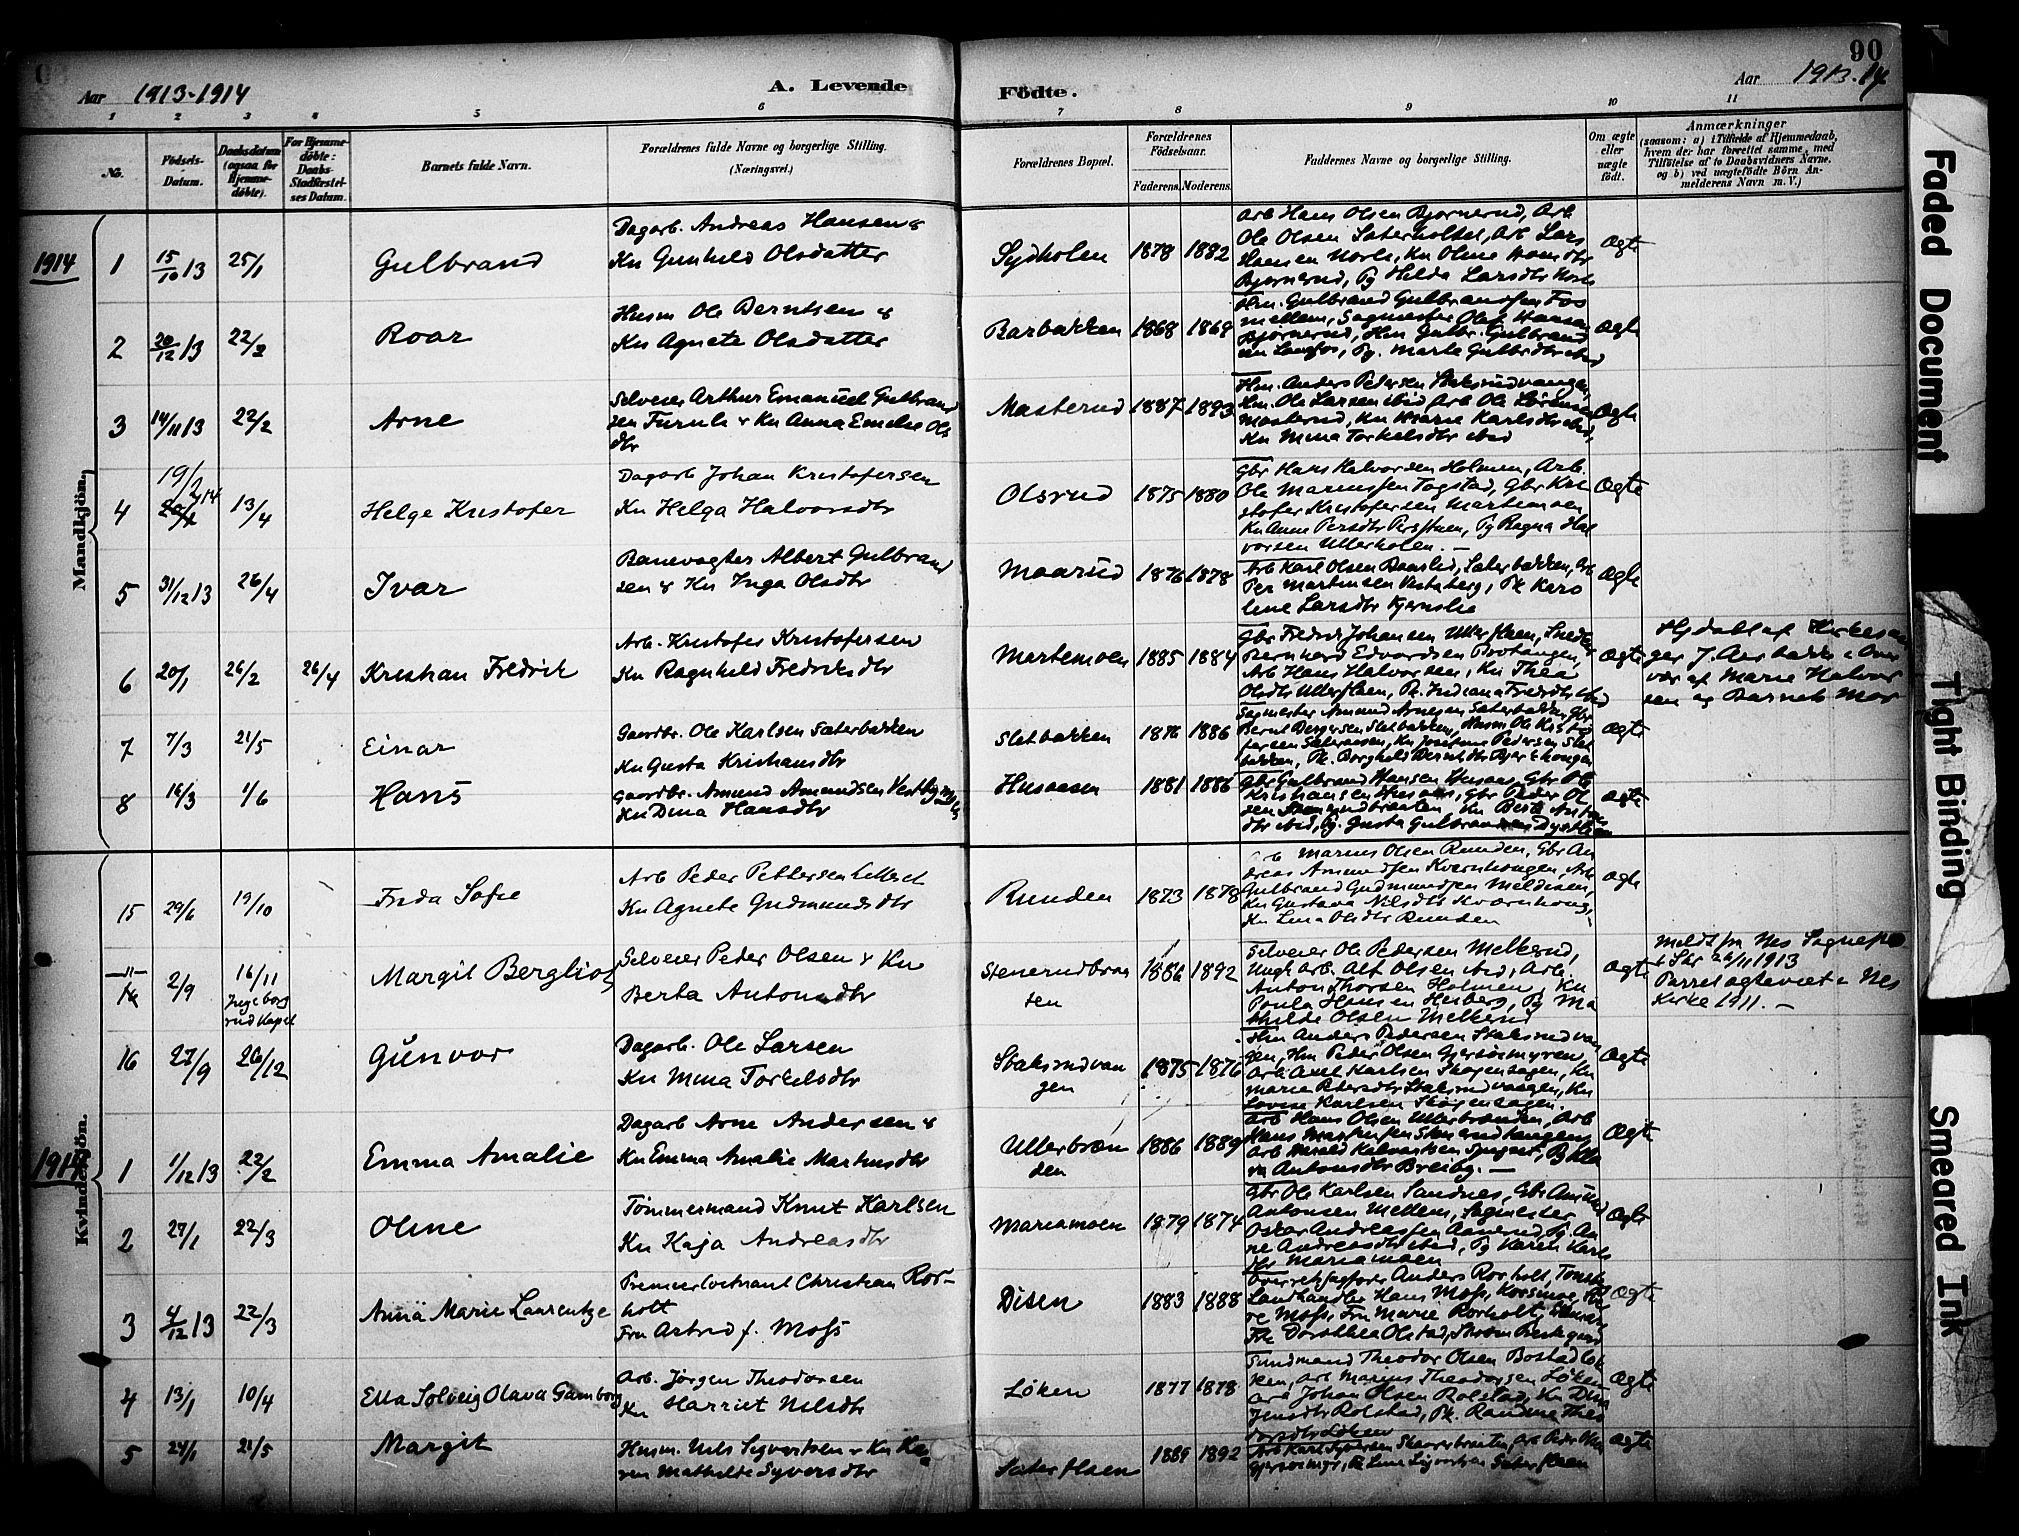 90
Aar 1913-1914
A. Levende
Födte.
Aar 1913-14
1 2 3 4 5 6 7 8 9 10 11
No.
Födsels-
Datum.
Daabsdatum
(ogsaa for
Hjemme-
döbte).
For Hjemme-
döbte:
Daabs-
Stadfæstel-
ses Datum.
Barnets fulde Navn.
Forældrenes fulde Navne og borgerlige Stilling.
(Næringsvei.)
Forældrenes Bopæl.
Forældrenes
Födselsaar.
Faderens. Moderens.
Faddernes Navne og borgerlige Stilling.
Om ægte
eller
uægte
födt.
Anmærkninger
(saasom: a) i Tilfælde af Hjemmedaab,
hvem der har forrettet samme, med
Tilföielse af to Daabsvidners Navne,
og b) ved uægtefödte Börn An-
melderens Navn m. V.)
Mandkjön.
1914
1 15/10 13 25/1 Gulbrand
Dagarb. Andreas Hansen &
Kn Gunhild Olsdatter
Sydholen 1878 1882
Arb Hans Olsen Bjørnerud, Arb
Ole Olsen Saterholtet, Arb Lars
Hansen Norli, Kn Oline Hansdtr
Bjørnerud, Pg Hilda Larsdtr
Ægte
2 20/12 13 22/2 Roar
Husm Ole Berntsen &
Kn Agnete Olsdatter
Barbakken 1868 1869
Hm. Gulbrand Gulbrandsen Fos
mellem, Sagmester Olaf Hansen
Bjørnerud, Hm Gulbr. Gulbrand
sen Langfos, Pg. Marta Gulbrdtr ibid
Ægte
3 14/11 13 22/2 Arne
Selveier Arthur Emanuel Gulbrand
sen Furulu & Kn Anna Emelie Ols
dtr
Masterud 1887 1893
Hm. Anders Pedersen Staksrudvangen,
Hm. Ole Larsen ibid Arb Ole Sørensen
Masterud, Kn Marie Karlsdtr ibid,
Kn Mina Torkelsdtr ibid
Ægte
4 19/2 14 13/4 Helge Kristofer
Dagarb Johan Kristofersen
Kn Helga Halvorsdtr
Olsrud 1875 1880
Gbr Hans Halvorsen Holmen, Arb.
Ole Mariussen Togstad, Gbr Kri
stofer Kristofersen Martemoen
Kn Anne Persdtr Persstuen, Pg Ragna Hal
vorsen Ullerholen. –
Ægte
5 31/12 13 26/4 Ivar
Banevogter Albert Gulbrand
sen & Kn Inga Olsdtr
Maarud 1876 1878
Arb Karl Olsen Baaslid, Saterbakken, Arb
Per Martinsen Vestaberg, Pk Karo
line Larsdtr Kjernslie
Ægte
6 20/1 26/2 26/4 Kristian Fredrik
Arb. Kristofer Kristofersen
Kn Ragnhild Fredriksdtr
Martemoen 1885 1884
Gbr Fredrik Johansen Ullerflaen, Snedker
Bernhard Edvardsen Brotangen,
Arb Hans Halvorsen, Kn Thea
Olsdtr Ullerflaen, Pk. Indiana Fredrdtr ibid
Ægte
Hjdøbt af Kirkesan
ger J. Aarbakke i Over
vær af Marie Halvor
sen og Barnets Mor
7 7/3 21/5 Einar
Gaardbr. Ole Karlsen Saterbakken
Kn Gusta Kristiansdtr
Sletbakken 1876 1886
Sagmester Amund Arnesen Saterbakken, Gbr
Bernt Bergersen Sletbakken, Husm Ole Kristo
fersen Sateraasen, Kn Josefine Pedersen Slet
bakken, Pk. Borghild Berntsdtr
Ægte
8 16/3 1/6 Hans
Gaardbr. Amund Amundsen Vestby
Kn Dina Hansdtr
Husaasen 1881 1886
Gbr Gulbrand Hansen Husaas, Gbr Ole
Kristiansen Husaas, Gbr Peder Ol
sen, Kn Berte
dtr ibid, Pg. Gusta Gulbrandsen
Ægte
Kvindekjön.
15 29/6 19/10 Frida Sofie
Arb Peder Pettersen Letteret
Kn Agnete Gudmundsdtr
Runden 1873 1878
Arb Marius Olsen Runden, Gbr An
dreas Amundsen Kvernhougen, Arb
Gulbrand Gudmundsen Meldisen,
Kn Gustava Nilsdtr Kvernhoug,
Kn Lina Olsdtr Runden
Ægte
2/9 16/11 Margit Bergliot
Ingeborg
rud Kapel
Selveier Peder Olsen & Kn
Berta Antonsdtr
Stenerudbraa
ten 1886 1892
Selveier Ole Pedersen Melkerud,
Ungk. Arb. Alf Olsen ibid, Arb.
Anton Thorsen Holmen, Kn
Paula Hansen Heiberg, Pg Ma
thilde Olsen Melkerud
Ægte
Meldt fra Nes Sognepr
i Skr 26/11 1913
Parret ægteviet i Nes
Kirke 1911. –
16 27/9 26/12 Gunvor
Dagarb. Ole Larsen
Kn Mina Torkelsdtr
Staksrudvan
gen 1875 1876
Hm Anders Pedersen Staksrudvan
gen, Hm Peder Olsen Gjersøimyren,
Arb Axel Karlsen Skogenhagen, Kn
Marie Pedersdtr Staksrudvangen, Kn
Lovise Karlsen Skogenhagen.
Ægte
1914
1 1/12 13 22/2 Emma Amalie
Dagarb Arne Andersen &
Kn Emma Amalie Martinsdtr
Ullerbrøn
den 1886 1889
Arb Hans Olsen Ullerbrønden, Arb
Hans
Arb Harald Halvorsen
Antonsdtr Breiby. –
Ægte
2 27/1 22/3 Oline
Tømmermand Knut Karlsen
Kn Kaja Andreasdtr
Mariamoen 1879 1874
Gbr Ole Karlsen Sandnes, Gbr Amund
Antonsen Mellem, Sagmester
Oskar Andreassen Aanerud, Pg An
ne Andreasdtr ibid, Pg Karen Karls
dtr Mariamoen
Ægte
3 4/12 13 22/3 Anna Marie Laurentze
Premierløitnant Christian Ror-
holt
Fru Astrid f. Moss
Disen 1883 1888
Overretssagfører Anders Rorholt, Træla
Landhandler Hans Moss, Korsmoe,
Moss, Fru Marie Rorholt,
Frk Dorothea Olstad, Strøm Prestegaard
Ægte
4 13/1 10/4 Ella Solveig Olava Gamborg
Arb. Jørgen Theodorsen
Kn Harriet Nilsdtr
Løken 1877 1878
Sundmand Theodor Olsen Bostadløk
ken, Arb Marius Theodorsen Løken
Arb Johan Olsen Rolstad, Kn Dina
Jensdtr Rolstad, Pk. Randine Theo
dorsdtr Løken
Ægte
5 24/1 21/5 Margit
Husm. Nils Syvertsen & Kn Ka
ren Mathilde Syversdtr
Saterflaen 1889 1892
Arb Karl Syversen, Arb Peder Olsen
Gjersøimyr, Pk Lina Syvertsen Saterflaen
Ægte
Faded Document
Tight Binding
Smeared Ink